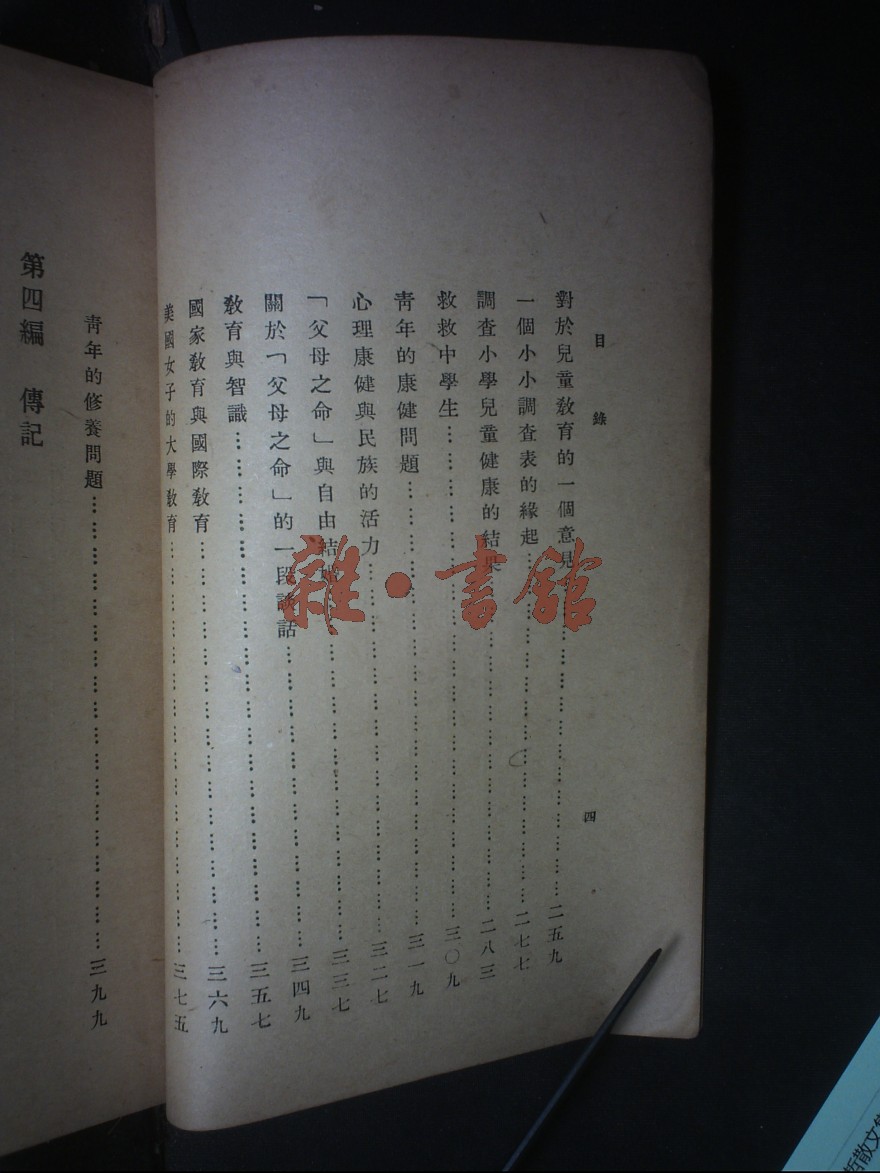 目錄
四
對於兒童教育的一個意見……二五九
一個小小調查表的緣起……二七七
調查小學兒童健康的結果……二八三
救救中學生……三〇九
靑年的康健問題……三一九
心理康健與民族的活力……三二七
「父母之命」與自由結婚……三三七
關於「父母之命」的一段談話……三四九
敎育與智識……三五七
國家敎育與國際敎育……三六九
美國女子的大學敎育……三七五
靑年的修養問題……三九九
第四編 傳記
雜·書館
散文